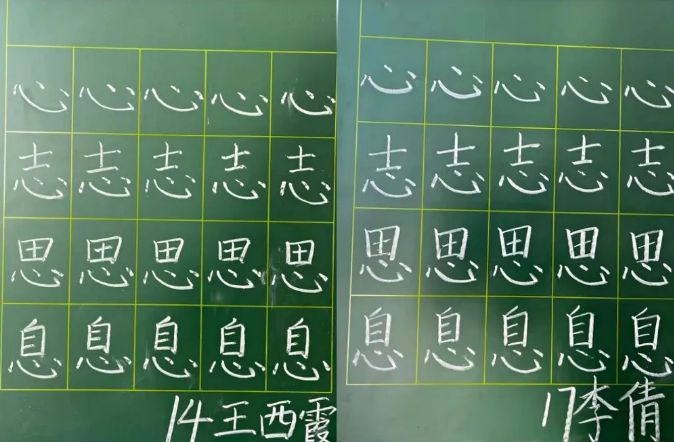 心心心心心
志志志志志
思思思思思
息息息息息
14王西霞
心心心心心
志志志志志
思思思思思
息息息息息
17李倩